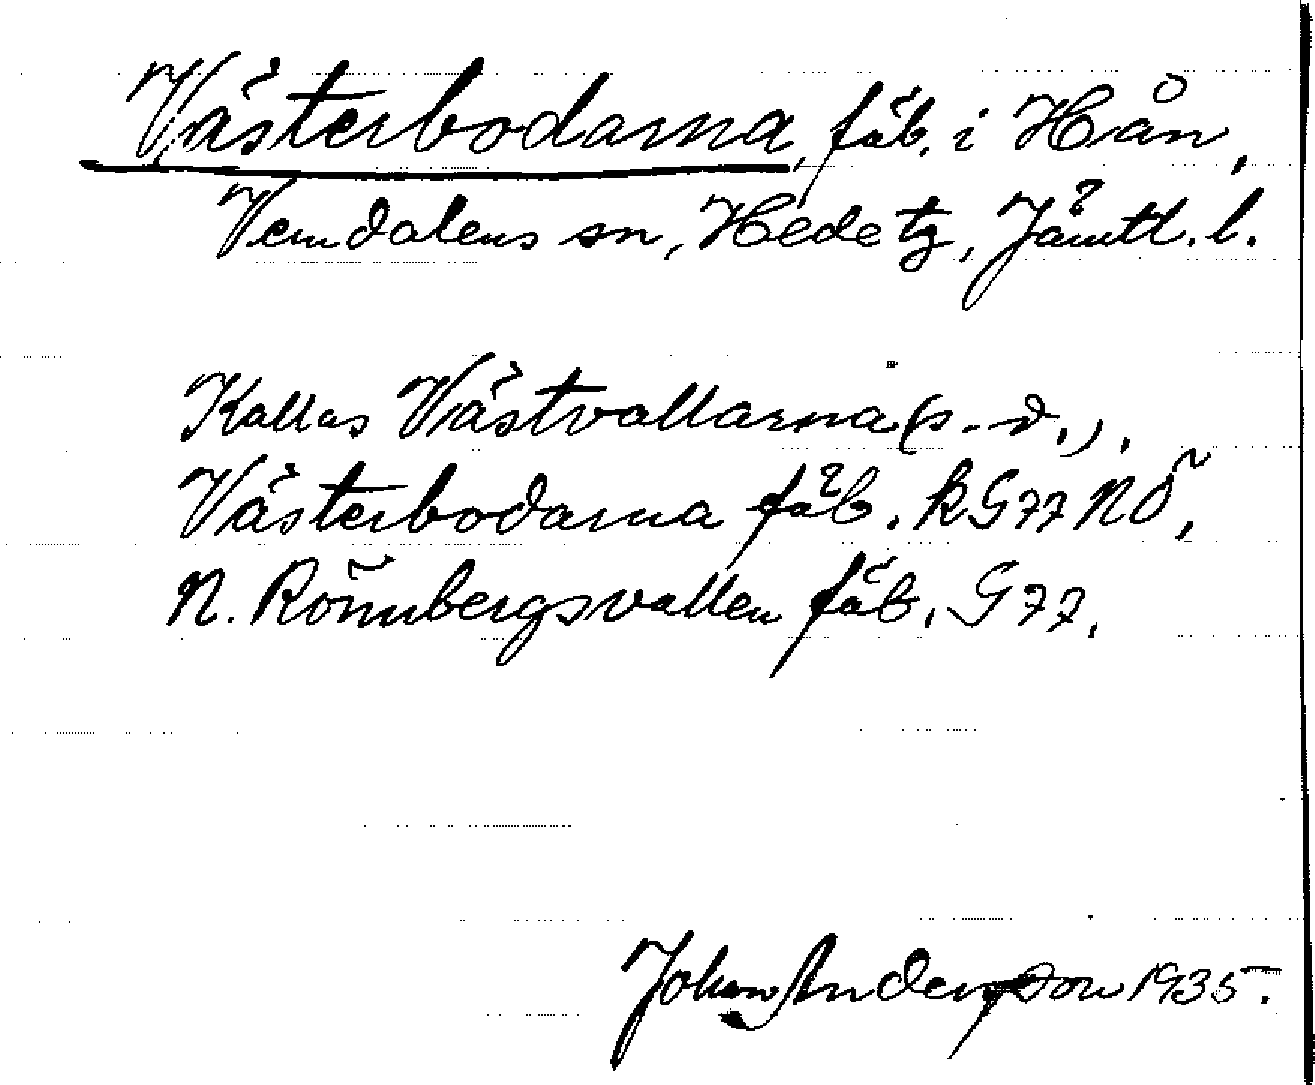 Västerbodarna, fäb. i Hån,
Vemdalens sn, Hede tg, Jämtl. l.
Kallas Västvallarna (s. d.).
Västerbodarna fäb. k G77 NÖ,
N. Rönnbergsvallen fäb. G77.
Johan Andersson 1935.